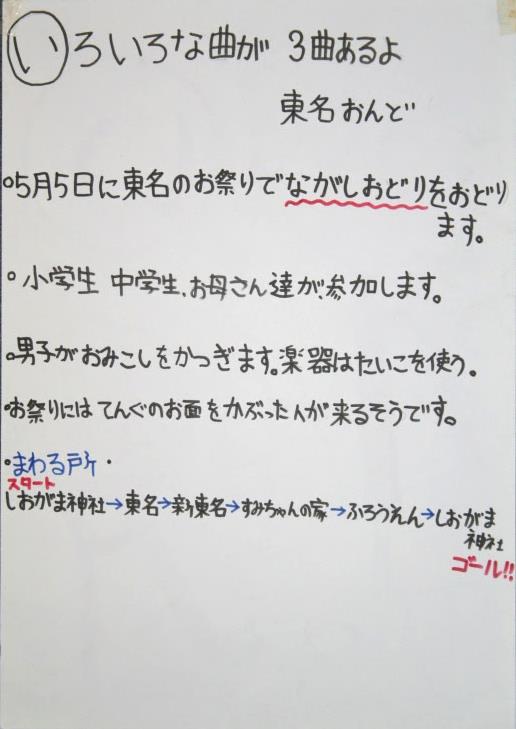 いろいろな曲が 3曲あるよ
東名おんど
○5月5日に東名のお祭りでながしおどりをおどり
ます。
○ 小学生 中学生、お母さん達が、参加します。
○男子がおみこしをかつぎます。楽器はたいこを使う。
○お祭りには てんぐのお面をかぶった人が来るそうです。
・まわる所・
スタート
しおがま神社→東名→新東名→すみちゃんの家→ふろうえん→しおがま
神社
ゴール!!